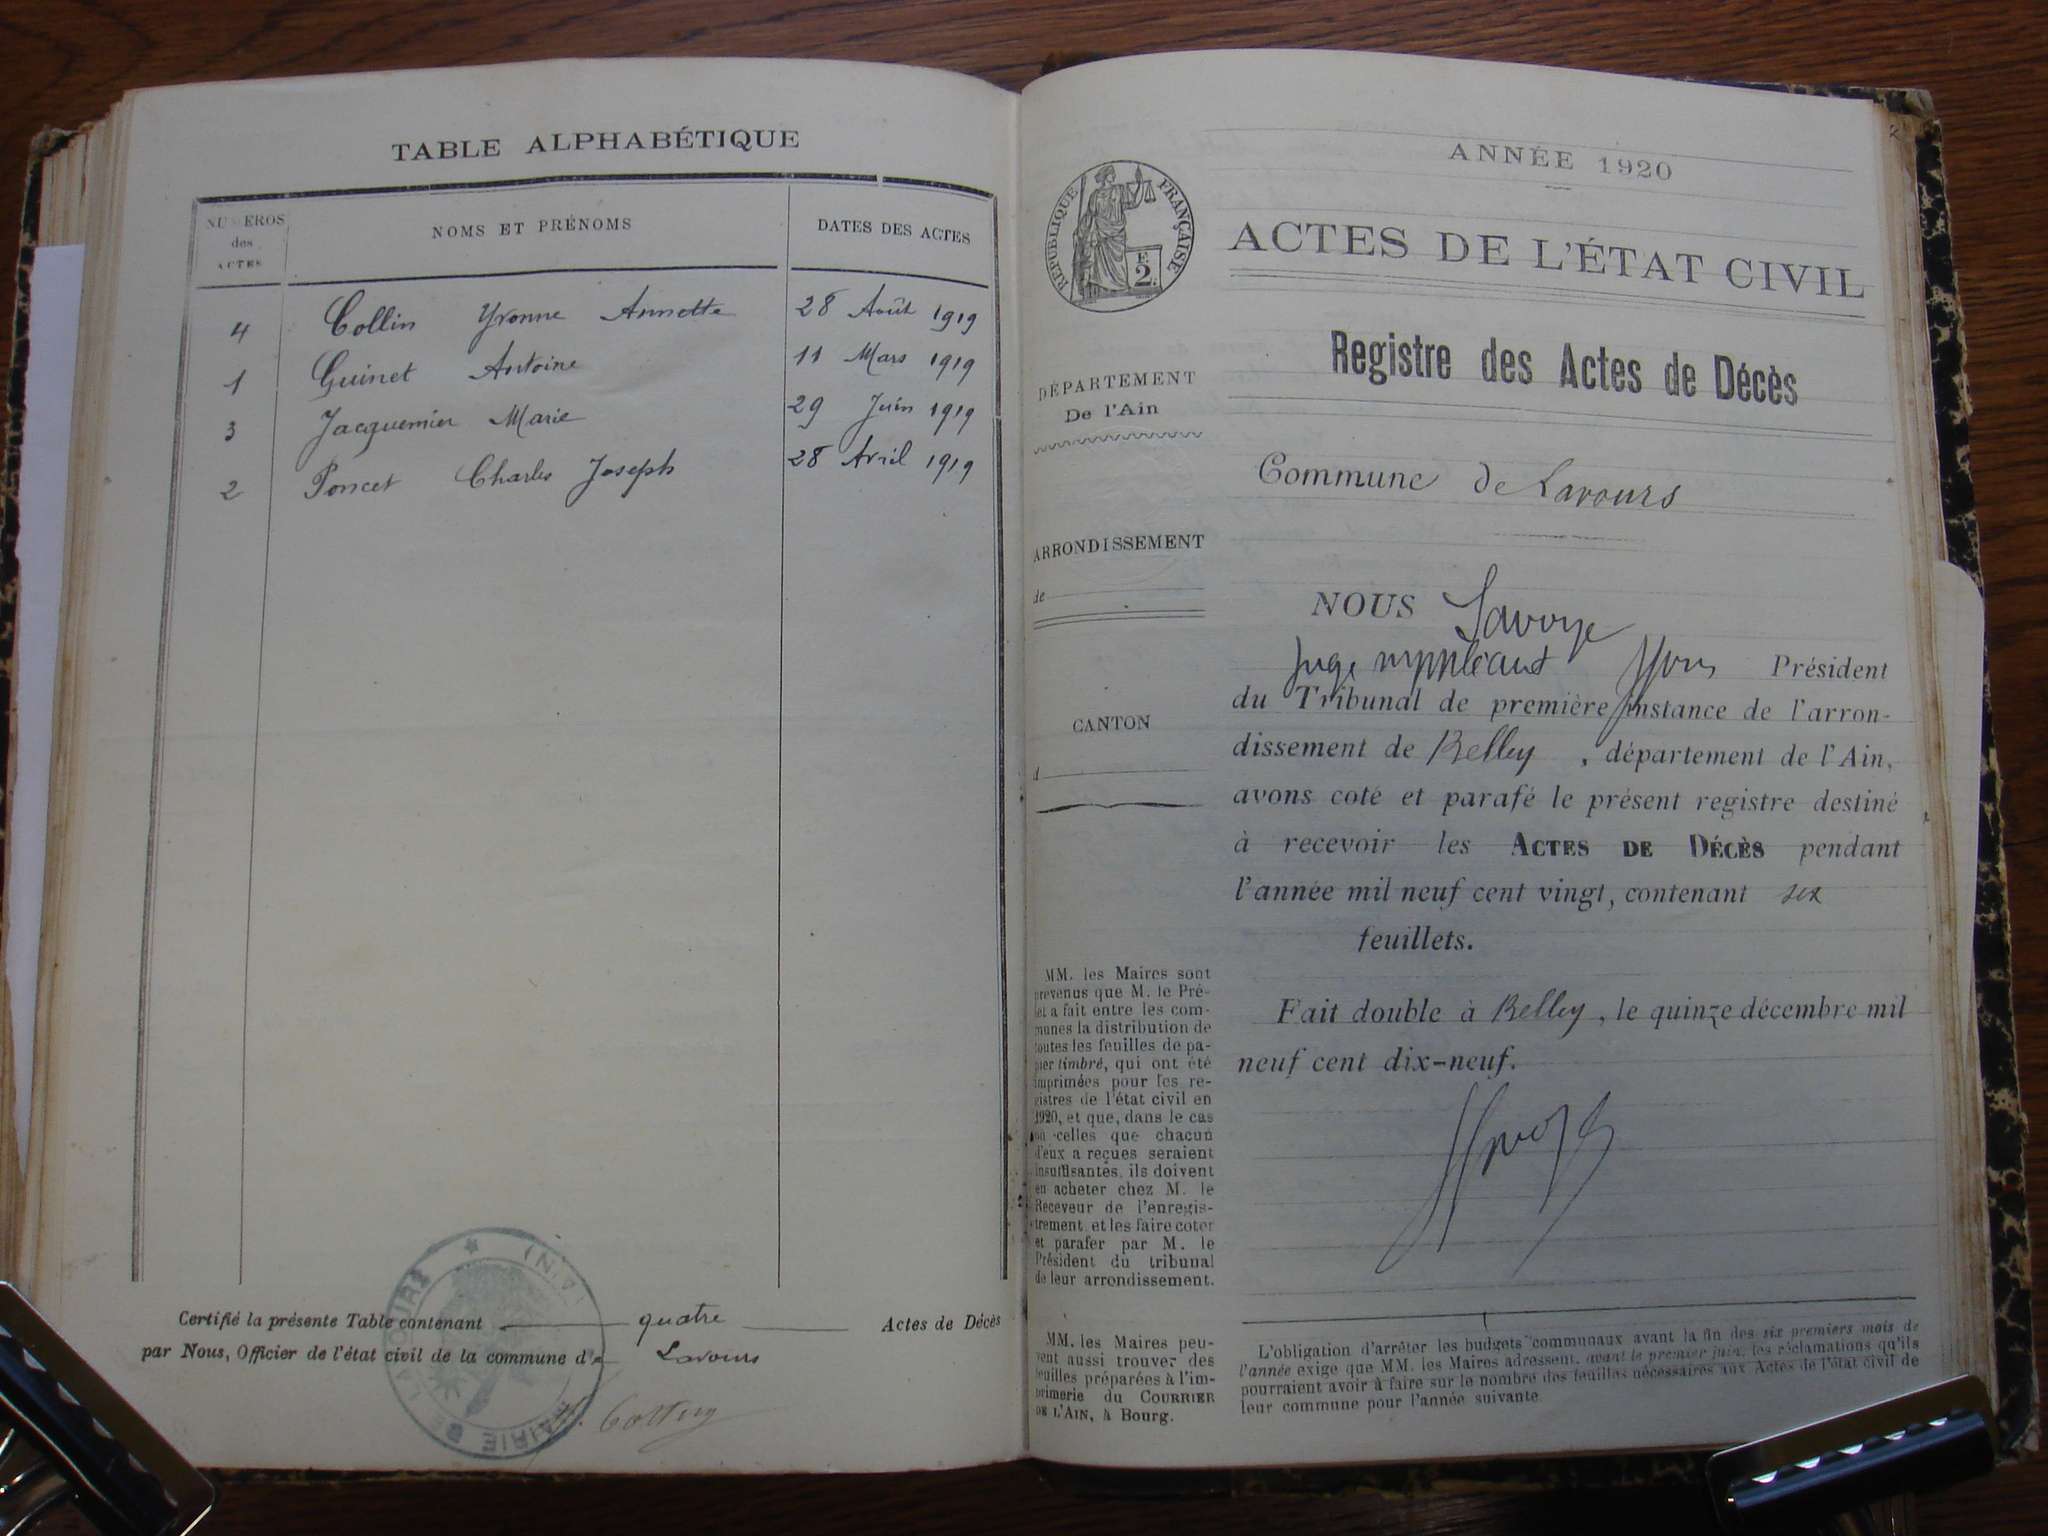 TABLE ALPHABÉTIQUE
NUMÉROS
des
ACTES
NOMS ET PRÉNOMS
DATES DES ACTES
4 Collin Yvonne Annette 28 Août 1919
1 Guinet Antoine 11 Mars 1919
3 Jacquemier Marie 29 Juin 1919
2 Poncet Charles Joseph 28 Avril 1919
Certifié la présente Table contenant quatre Actes de Décès
par Nous, Officier de l'état civil de la commune de Lavours
MAIRIE DE LAVOURS
(AIN)
ANNÉE 1920
RÉPUBLIQUE FRANÇAISE
2
ACTES DE L'ÉTAT CIVIL
Registre des Actes de Décès
DÉPARTEMENT
De l'Ain
Commune de Lavours
ARRONDISSEMENT
de
NOUS Savoye
Juge suppléant Président
du Tribunal de première instance de l'arron-
CANTON
d
dissement de Belley, département de l'Ain,
avons coté et parafé le présent registre destiné
à recevoir les ACTES DE DÉCÈS pendant
l'année mil neuf cent vingt, contenant six
feuillets.
Fait double à Belley, le quinze décembre mil
neuf cent dix-neuf.
MM. les Maires sont
prévenus que M. le Pré-
fet a fait entre les com-
munes la distribution de
toutes les feuilles de pa-
pier timbré, qui ont été
imprimées pour les re-
gistres de l'état civil en
1920, et que, dans le cas
où celles que chacun
d'eux a reçues seraient
insuffisantes, ils doivent
en acheter chez M. le
Receveur de l'enregis-
trement, et les faire coter
et parafer par M. le
Président du tribunal
de leur arrondissement.
MM. les Maires peu-
vent aussi trouver des
feuilles préparées à l'im-
primerie du COURRIER
DE L'AIN, à Bourg.
L'obligation d'arrêter les budgets communaux avant la fin des six premiers mois de
l'année exige que MM. les Maires adressent, avant le premier juin, les réclamations qu'ils
pourraient avoir à faire sur le nombre des feuilles nécessaires aux Actes de l'état civil de
leur commune pour l'année suivante.